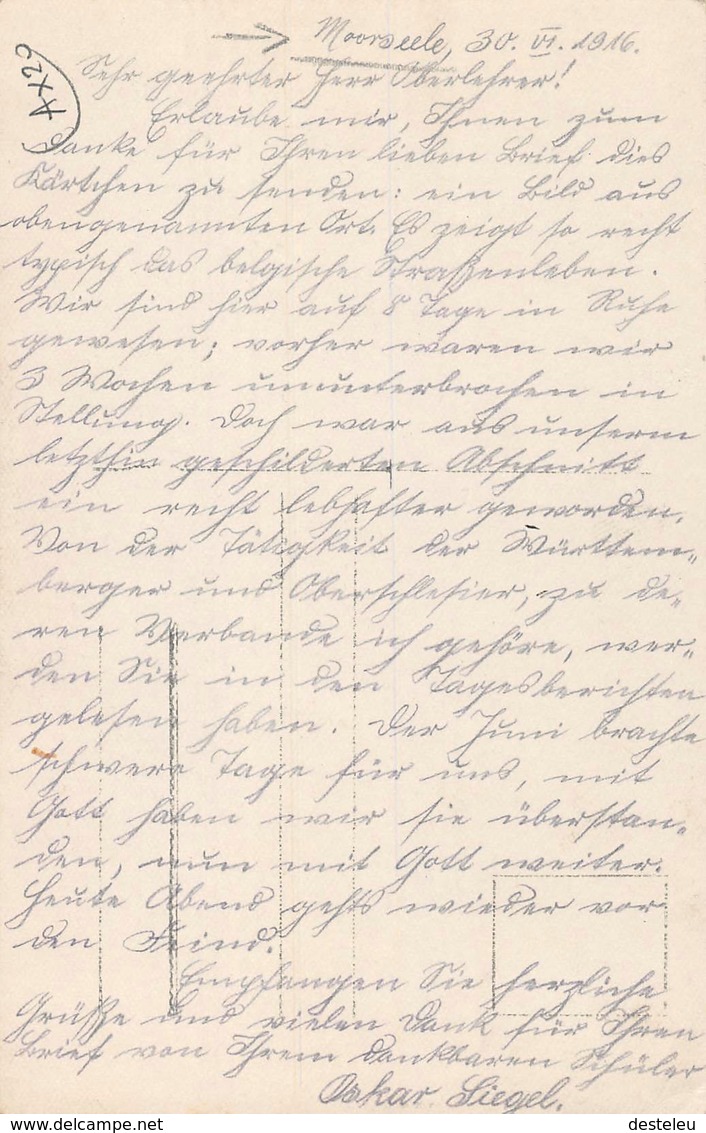 Moorseele, 30. VI. 1916.
AX26
Sehr geehrter Herr Oberlehrer!
Erlaube mir, Ihnen zum
Danke für Ihren lieben Brief dies
Kärtchen zu senden: ein Bild aus
obengenannten Ort. Es zeigt so recht
typisch das belgische Straßenleben.
Wir sind hier auf 8 Tage in Ruhe
gewesen; vorher waren wir
3 Wochen ununterbrochen in
Stellung. Doch war aus unserm
letzthin geschilderten Abschnitt
ein recht lebhafter geworden.
Von der Tätigkeit der Württem-
berger und Oberschlesier, zu de-
ren Verbande ich gehöre, wer-
den Sie in den Tagesberichten
gelesen haben. Der Juni brachte
schwere Tage für uns, mit
Gott haben wir sie überstan-
den, nun mit Gott weiter.
Heute Abend gehts wieder vor
den Feind.
Empfangen Sie herzliche
Grüße und vielen Dank für Ihren
Brief von Ihrem dankbaren Schüler
Oskar Siegel.
desteleu
delcampe.net